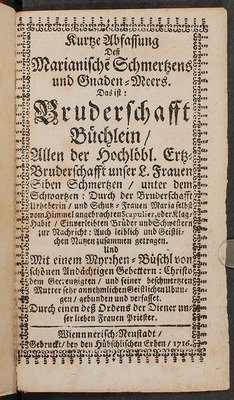 Kurtze Abfassung
Deß
Marianischē Schmertzens
und Gnaden-Meers.
Das ist:
Bruderschafft
Büchlein /
Allen der Hochlöbl. Ertz-
Bruderschafft unser L. Frauen
Siben Schmertzen / unter dem
Schwartzen: Durch der Bruderschafft
Urheberin / und Schutz-Frauen Maria selbst
vom Himmel angebrachten Scapulier, oder Klag-
Habit / Einverleibten Brüder und Schwestern
zur Nachricht: Auch leiblich und Geistli-
chen Nutzen zusammen getragen.
Und
Mit einem Myrrhen-Büschl von
schönen Andächtigen Gebettern: Christo
dem Gecreutzigten / und seiner beschmertzten
Mutter sehr annehmlichen Geistlichen Übun-
gen / gebunden und verfasset.
Durch einen deß Ordens der Diener un-
ser lieben Frauen Priester.
Wiennerisch-Neustadt /
Gedruckt / bey den Hübschlischen Erben / 1716.